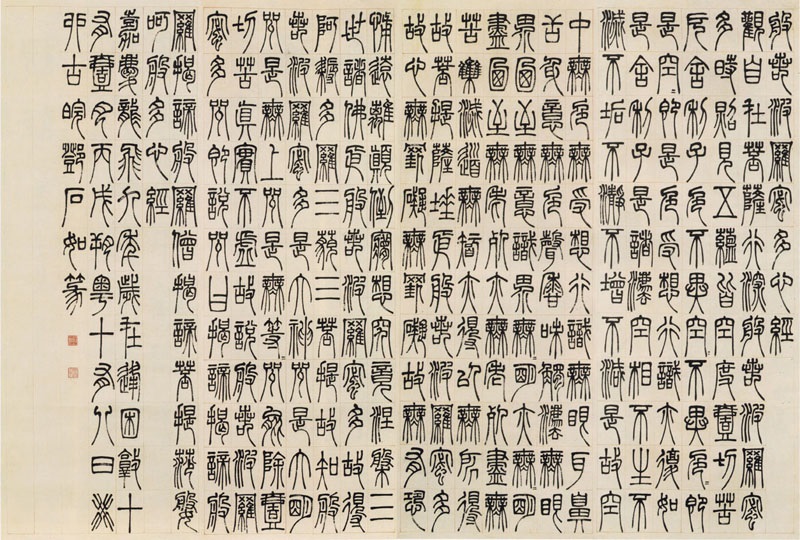 般若波羅蜜多心經
觀自在菩薩行深般若波羅蜜
多時照見五蘊皆空度壹切苦
厄舍利子色不異空〻不異色〻即
是空〻即是色受想行識亦復如
是舍利子是諸法空相不生不
滅不垢不淨不增不減是故空
中無色無受想行識無眼耳鼻
舌身意無色聲香味觸法無眼
界乃至無意識界無〻明亦無〻明
盡乃至無老死亦無老死盡無
苦集滅道無智亦得以無所得
故菩提薩埵依般若波羅蜜多
故心無罣礙無罣礙故無有恐
怖遠離顛倒夢想究竟涅槃三
世諸佛依般若波羅蜜多故得
阿耨多羅三藐三菩提故知般
若波羅蜜多是大神咒是大明
咒是無上咒是無等〻咒能除壹
切苦真實不虛故說般若波羅
蜜多咒即說咒曰揭諦揭諦般
羅揭諦般羅僧揭諦菩提婆
呵般多心經
嘉慶龍飛九年歲在逢困敦十
有壹月丙戌朔粵十有八日癸
卯古皖鄧石如篆